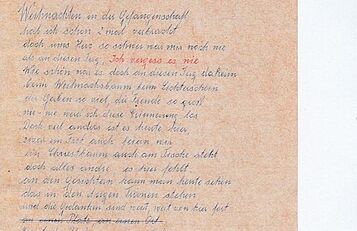 Weihnachten in der Gefangenschaft
hab ich schon 2 mal verbracht
doch ums Herz so schwer war mir noch nie
als an diesem Tag. Ich vergess es nie
Wie schön war es doch an diesem Tag daheim
beim Weihnachtsbaum beim Lichterschein
der Gaben so viel, die Freude so groß
nie - nie werd ich diese Erinnerung los
Doch viel anders ist es heute hier
auch wir
ein Christbaum auch am Tische steht
doch alles andre es hier fehlt
an den Gesichtern kann man heute sehen
das in den Augen Tränen stehen
und die Gedanken sind weit, weit von hier fort
an einem Platz an einen Ort